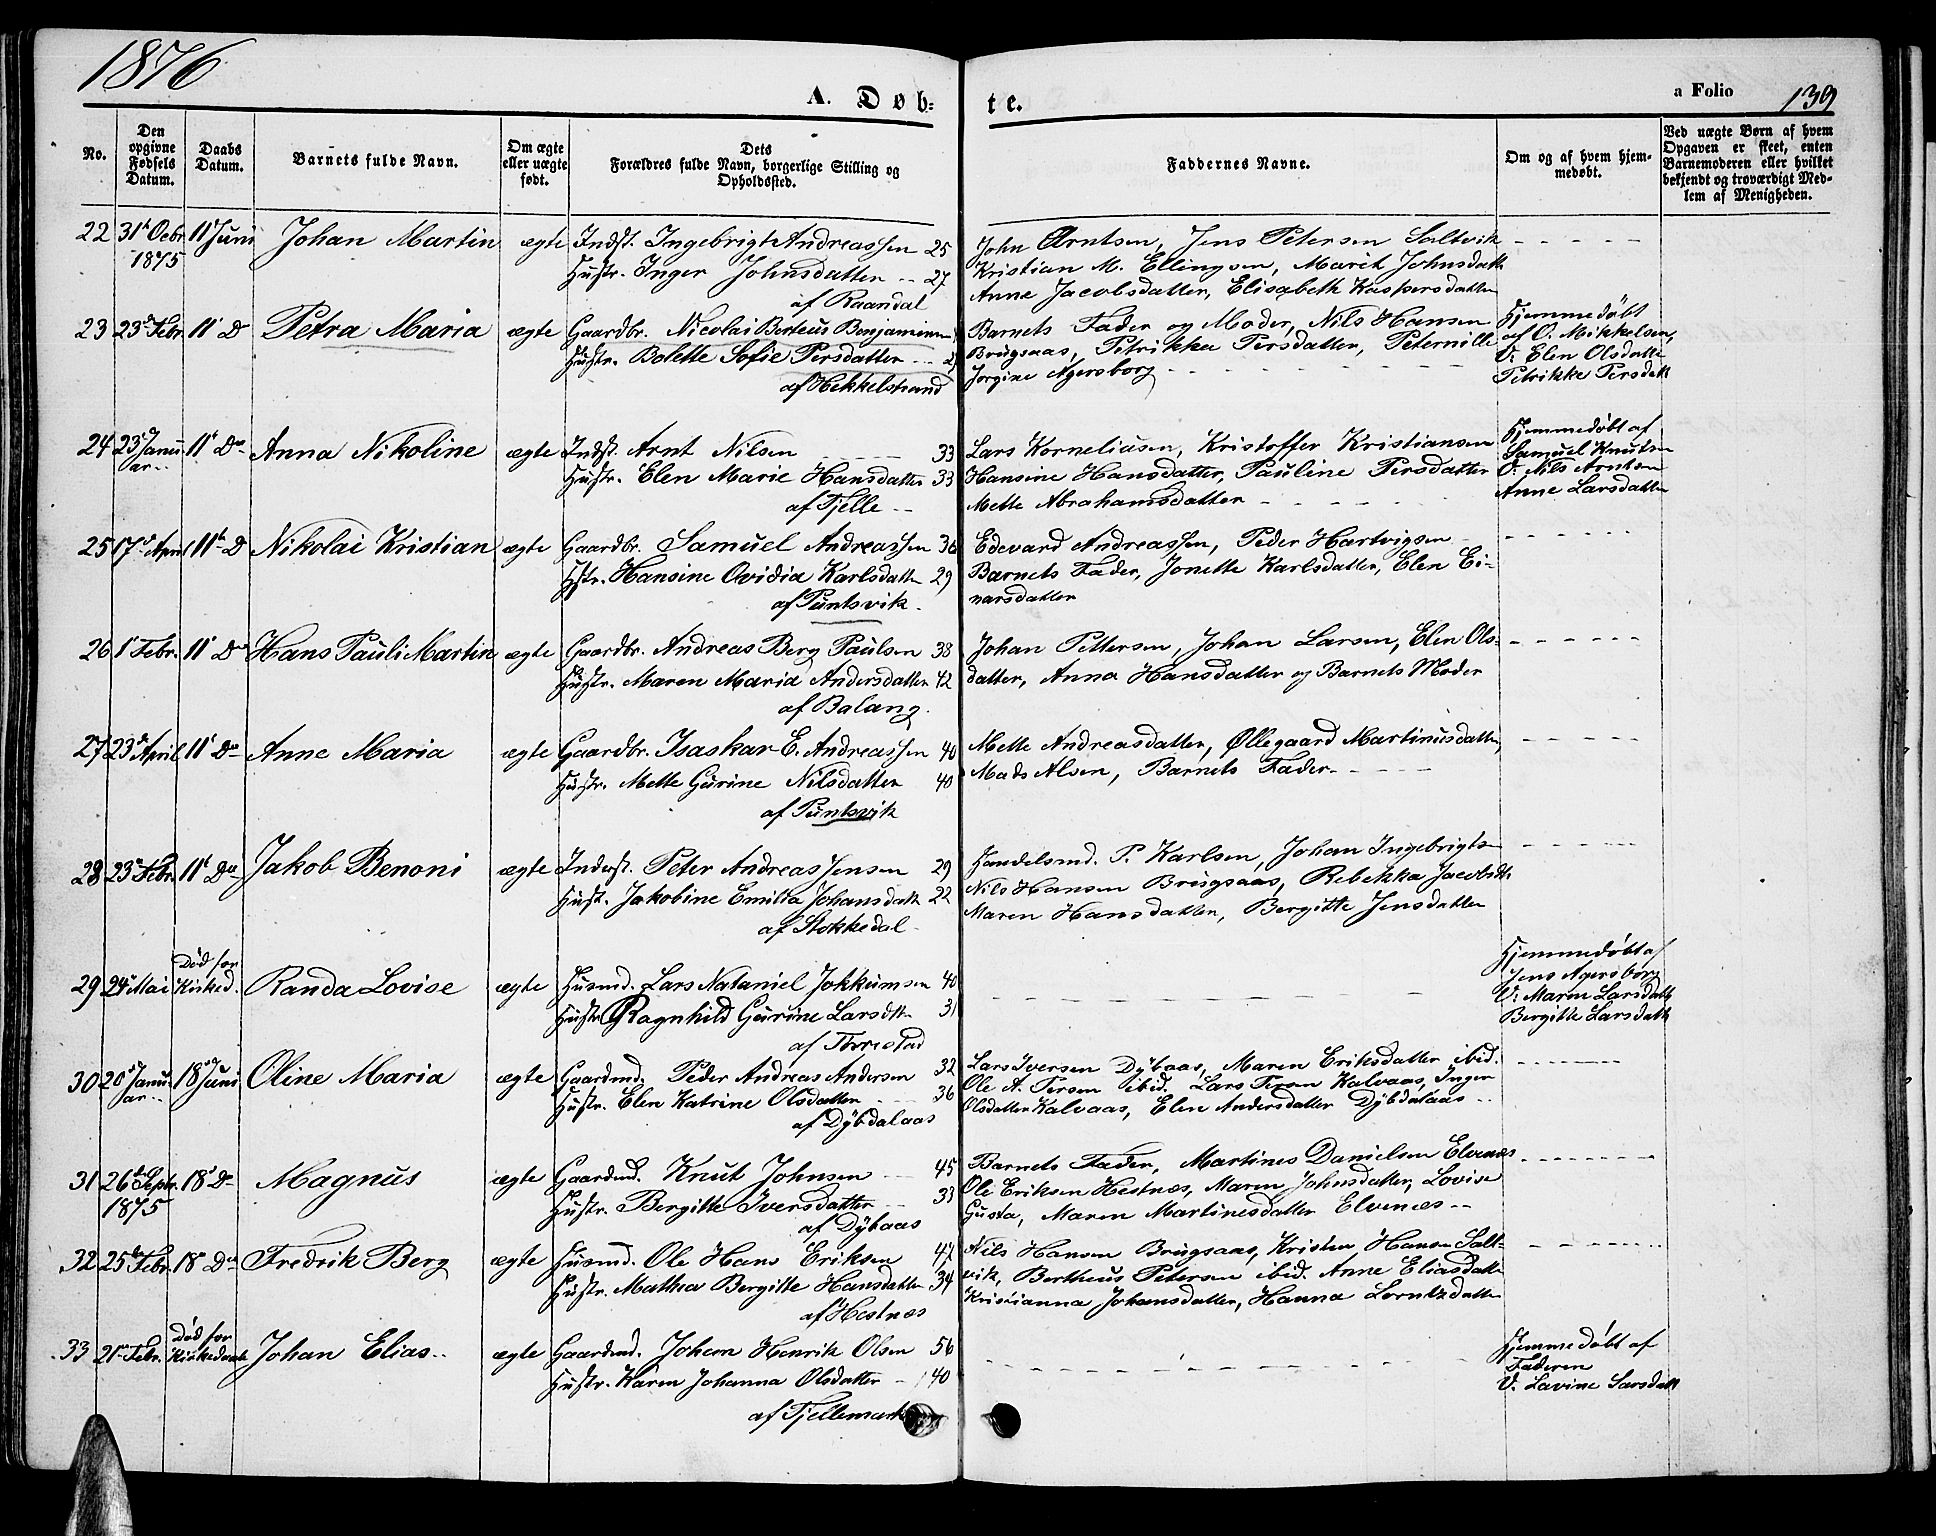 1876
A. Døb=
te.
a Folio 139
No.
Den opgivne Fødsels Datum.
Daabs Datum.
Barnets fulde Navn.
Om ægte eller uægte født.
Dets Forældres fulde Navn, borgerlige Stilling og Opholdssted.
Faddernes Navne.
Om og af hvem hjemmedøbt.
Ved uægte Børn af hvem Opgaven er skeet, enten Barnemoderen eller hvilket bekjendt og troværdigt Medlem af Menigheden.
22 31t Octbr 11 Juni Johan Martin ægte Indst. Ingebrigt Andreassen 25
1875 Hustr. Inger Johnsdatter 27
af Raandal
John Arntsen, Jens Petersen Saltvik
Kristian M. Ellingsen, Marit Johnsdatt
Anne Jacobsdatter, Elisabeth Kaspersdatter
23 23d Febr. 11t D Petra Maria ægte Gaardbr. Nicolai Berteus Benjaminsen
Hustr. Bolette Sofie Persdatter
af Hekkelstrand
Barnets Fader og Moder, Nils Hansen
Brugsaas, Petrikka Persdatter, Peternille
Jorgine Agersborg
Hjemmedøbt
af O. Mikkelsen,
V: Elen Olsdatte
Petrikke Persdatt
24 23d Janu 11t Do Anna Nikoline ægte Indst. Arnt Nilsen 33
ar Hustr. Elen Marie Hansdatter 33
af Fjelle
Lars Korneliusen, Kristoffer Kristiansen
Hansine Hansdatter, Pauline Persdatter
Mette Abrahamsdatter
Hjemmedøbt af
Samuel Knutsen
V. Nils Arntsen
Anne Larsdatter
25 17d April 11t D Nikolai Kristian ægte Gaardbr. Samuel Andreassen 36
Hstr. Hansine Ovidia Karlsdatte 29
af Puntsvik.
Edevard Andreassen, Peder Hartvigsen
Barnets Fader, Jonette Karlsdatter, Elen Ei-
narsdatter
26 1t Febr. 11t Do Hans Pauli Martin ægte Gaardbr. Andreas Berg Paulsen 38
Hustr. Maren Maria Andersdatter 42
af Balang.
Johan Pettersen, Johan Larsen, Elen Ols-
datter, Anna Hansdatter og Barnets Moder
27 23d April 11t Do Anne Maria ægte Gaardbr. Isaskar E. Andreassen 40
Hustr. Mette Gurine Nilsdatter 40
af Puntsvik
Mette Andreasdatter, Øllegaard Martinusdatter,
Mads Alsen, Barnets Fader
28 23d Febr. 11t Do Jakob Benoni ægte Inderst. Peter Andreas Jensen 29
Hust. Jakobine Emilia Johansdatt 22
af Stokkedal
Handelsmd. P. Karlsen, Johan Ingebrigts
Nils Hansen Brugsaas, Rebekka Jacobsdt.
Maren Hansdatter, Bergitte Jensdatter
29 24d Mai Død før Kirked. Randa Lovise ægte Husmd. Lars Nataniel Jokkumsen 40
Hustr. Ragnhild Gurine Larsdt. 31
af Thorestad
Hjemmedøbt af
Jens Agersborg
V: Maren Larsdatt
Bergitte Larsdatt
30 20d Janu 18d Juni Oline Maria ægte Gaardmd. Peder Andreas Andersen 32
ar Hustr. Elen Katrine Olsdatter 36
af Dybdalaas
Lars Iversen Dybaas, Maren Eriksdatter ibid.
Ole A. Persen ibid. Lars Persen Kalvaas, Inger
Olsdatter Kalvaas, Elen Andersdatter Dybdalaas
31 26d Septr. 18d D Magnus ægte Gaardmd. Knut Johnsen 45
1875 Hustr. Bergitte Iversdatter 33
af Dybaas
Barnets Fader, Martines Danielsen Elvenæs
Ole Eriksen Hestnæs, Maren Johnsdatter, Lovise
Gusta, Maren Martinesdatter Elvenæs
32 25d Febr. 18d Do Fredrik Berg ægte Husmd. Ole Hans Eriksen 47
Hustr. Mathea Bergitte Hansdatter 34
af Hestnæs
Nils Hansen Brugsaas, Kristen Hansen Salt-
vik, Bertheus Petersen ibid. Anne Eliasdatt
Kristianna Johansdatter, Hanna Lorntzdatter
33 21d Febr. Død før Kirkedaab Johan Elias ægte Gaardmd. Johan Henrik Olsen 56
Hustr. Karen Johanna Olsdatter 40
af Fjellemark
Hjemmedøbt af
Faderen
V. Lavine Larsdatt